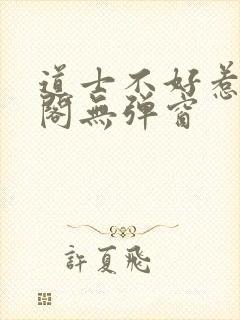 道士不好惹
閣無弹窗
許夏飛